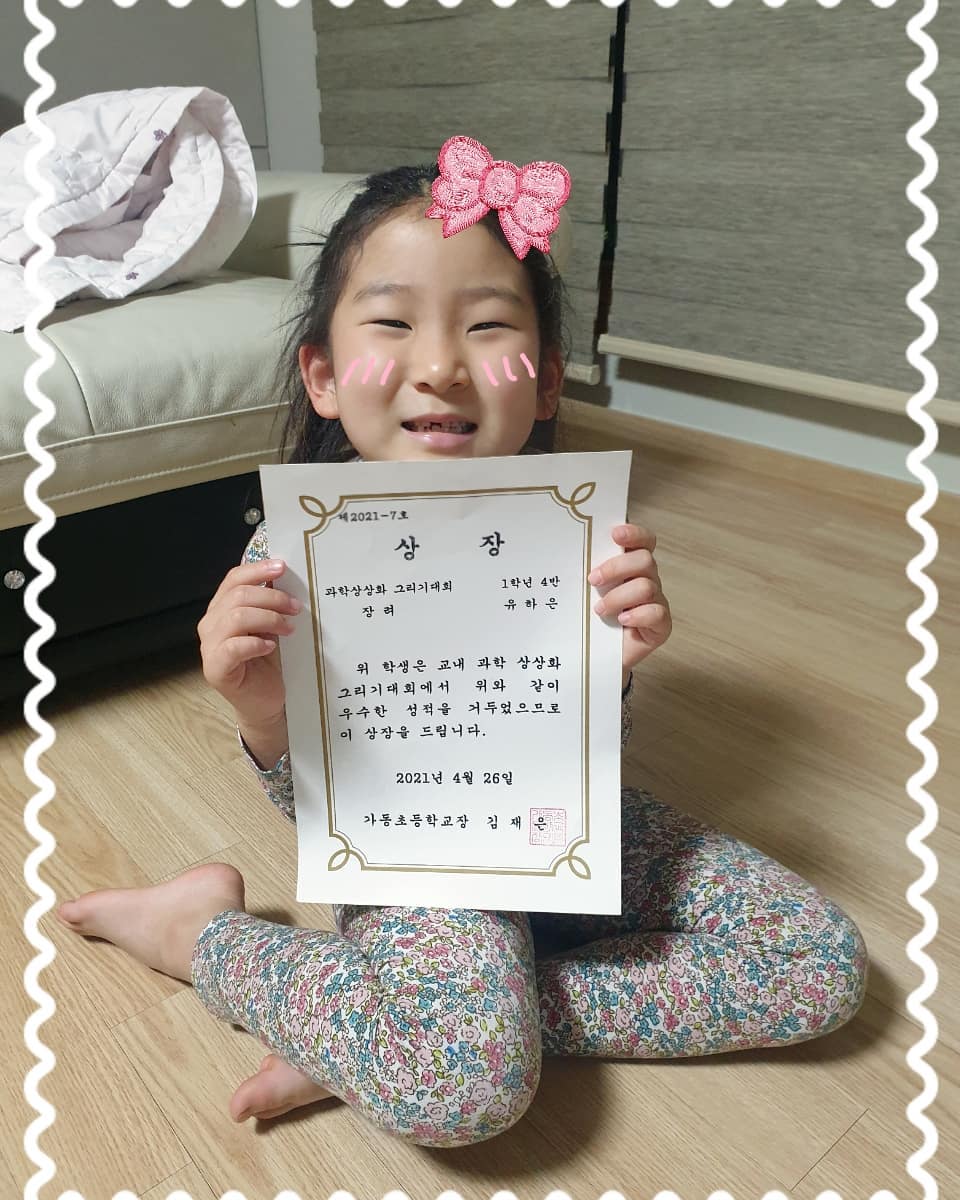 제2021-7호
상 장
과학상상화 그리기대회 1학년 4반
장 려 유 하 은
위 학생은 교내 과학 상상화
그리기대회에서 위와 같이
우수한 성적을 거두었으므로
이 상장을 드립니다.
2021년 4월 26일
가동초등학교장 김 재 은